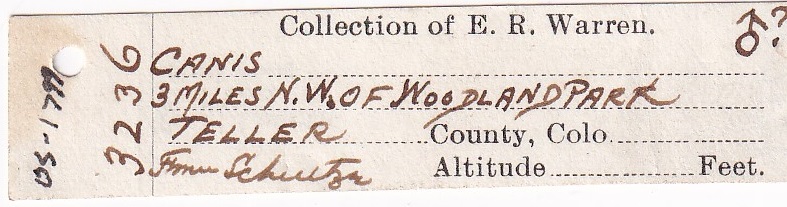 Collection of E. R. Warren.
♂?
CANIS
3 MILES N.W. OF WOODLAND PARK
TELLER County, Colo.
From Schultz
Altitude Feet.
3236
DS-1799